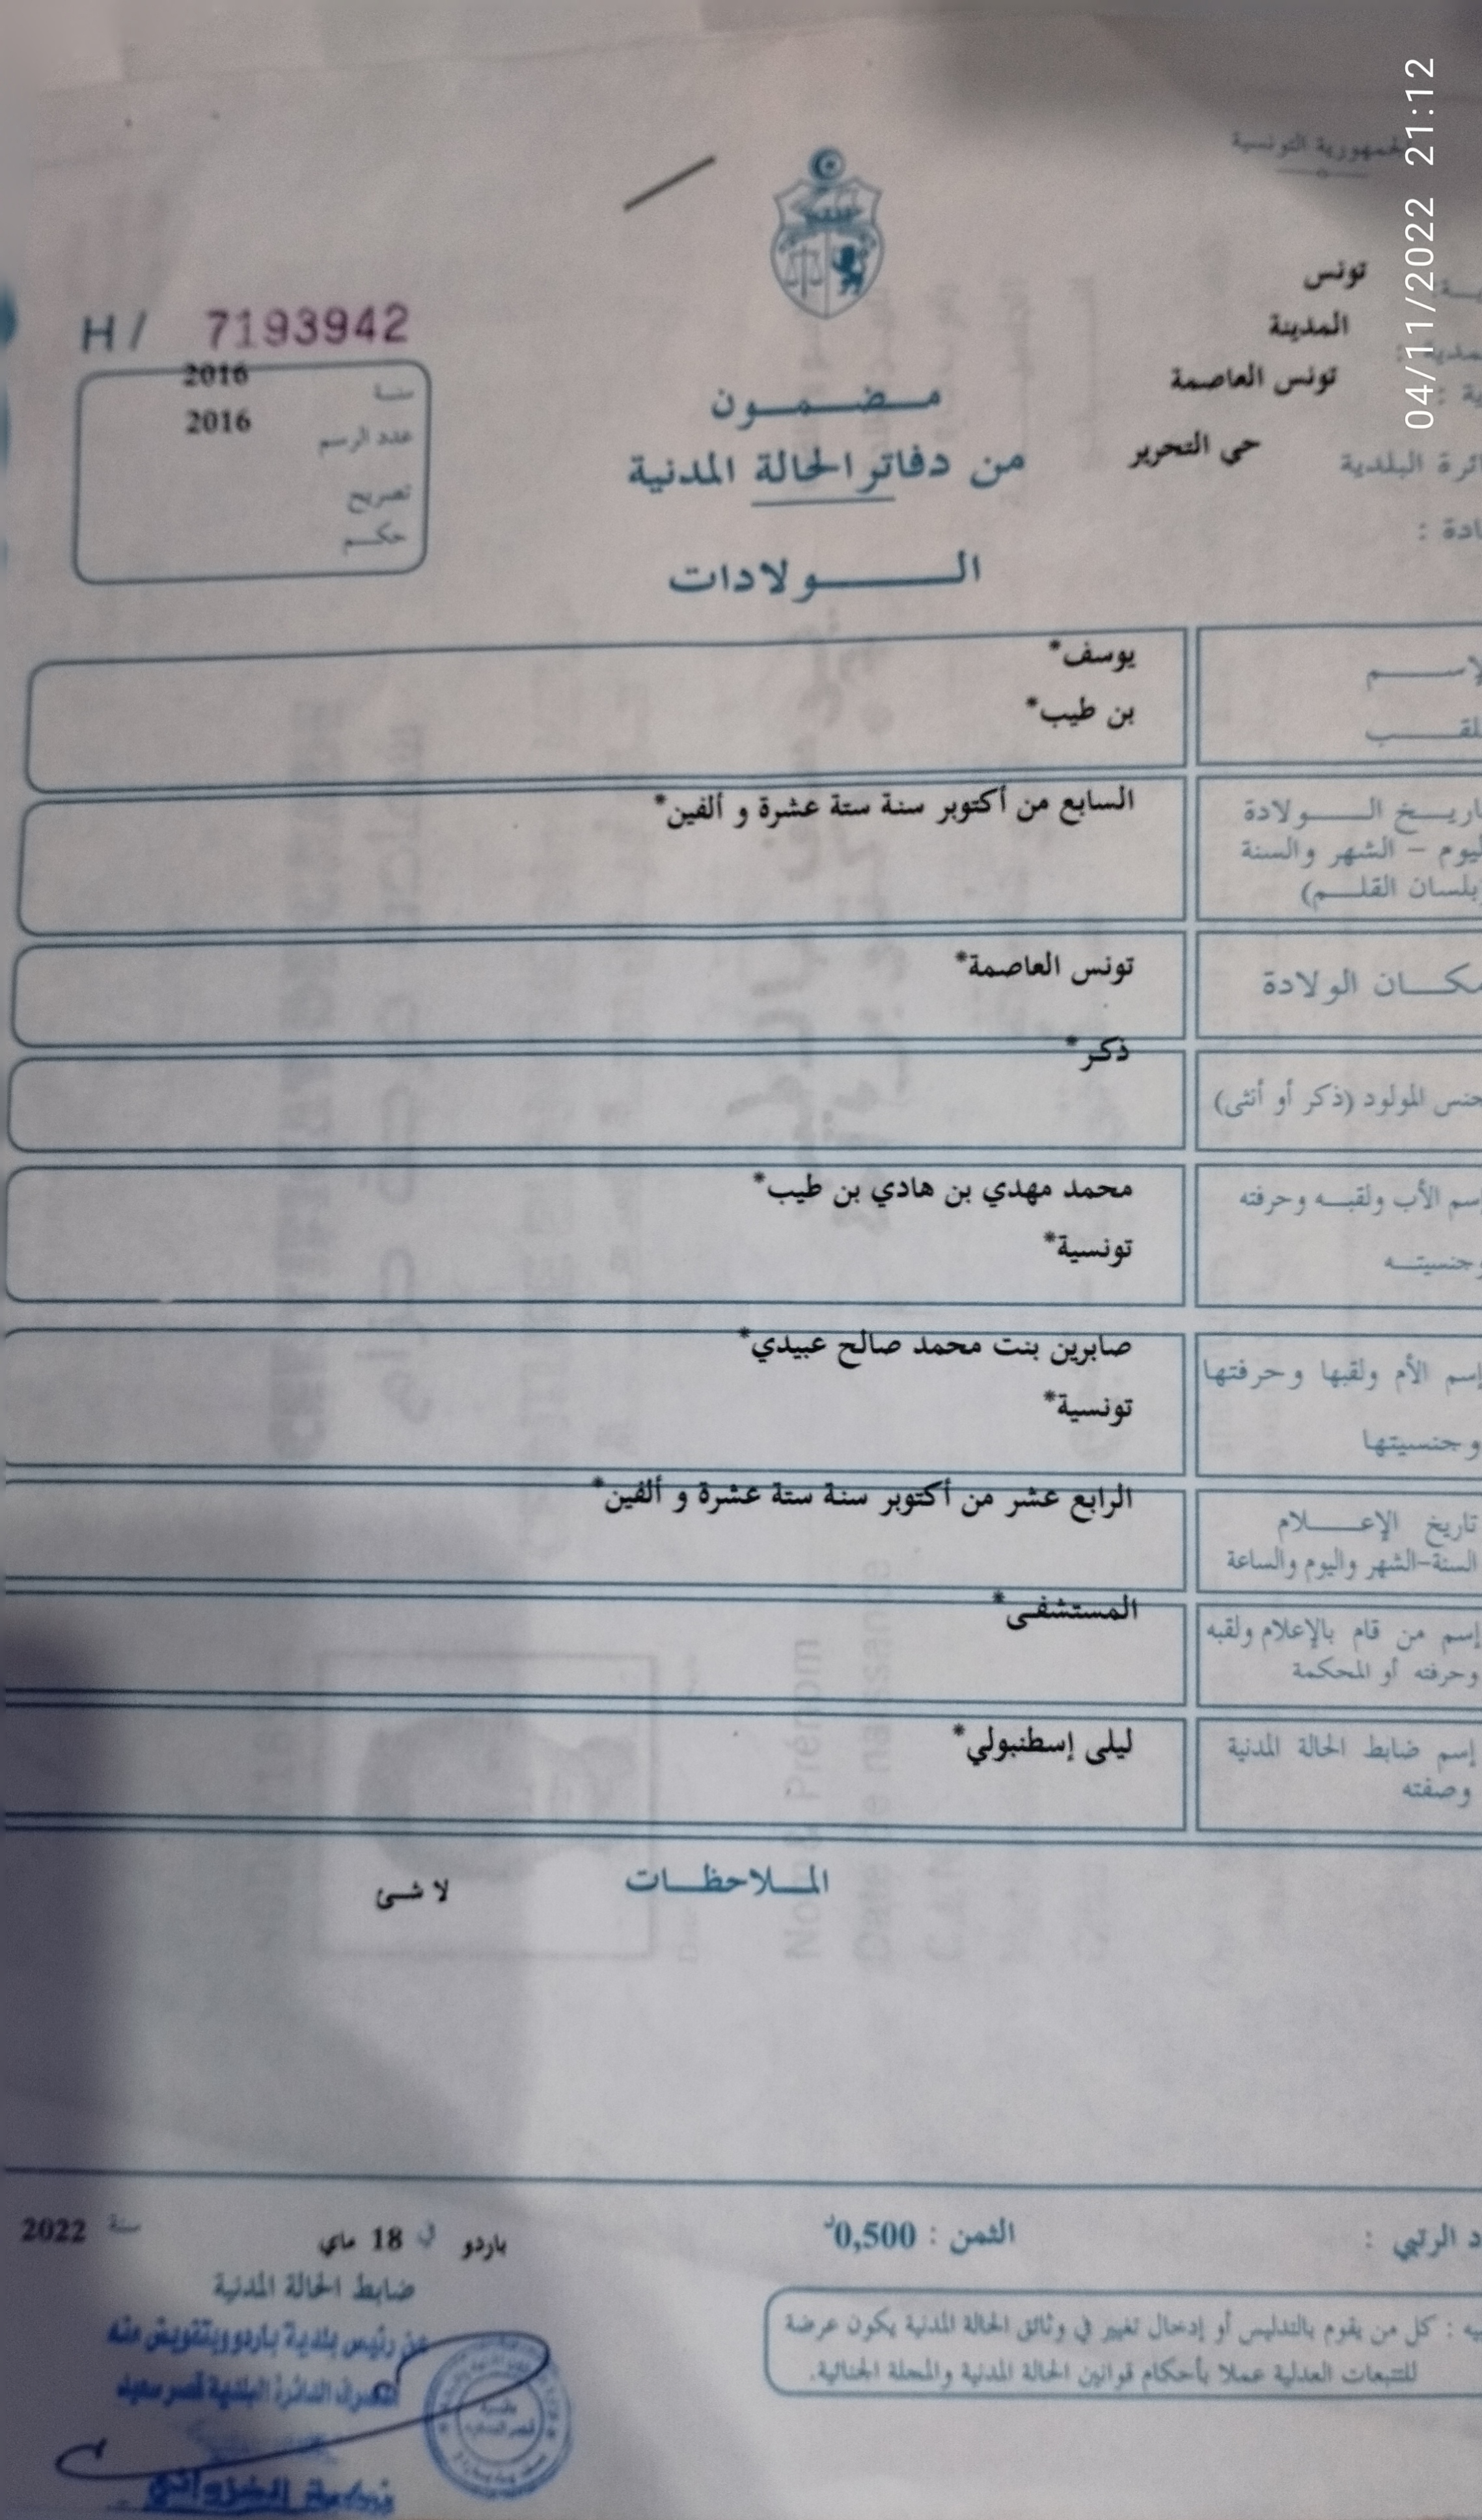 04/11/2022 21:12
الجمهورية التونسية
تونس
المدينة
تونس العاصمة
حي التحرير
البلدية
H/ 7193942
سنة 2016
عدد الرسم 2016
تصريح
حكم
مضمون
من دفاتر الحالة المدنية
الولادات
يوسف*
بن طيب*
السابع من أكتوبر سنة ستة عشرة و ألفين*
اليوم – الشهر والسنة
(بلسان القلم)
تونس العاصمة*
مكان الولادة
ذكر*
جنس المولود (ذكر أو أنثى)
إسم الأب ولقبه وحرفته
محمد مهدي بن هادي بن طيب*
وجنسيته
تونسية*
إسم الأم ولقبها وحرفتها
صابرين بنت محمد صالح عبيدي*
وجنسيتها
تونسية*
تاريخ الإعلام
السنة-الشهر واليوم والساعة
الرابع عشر من أكتوبر سنة ستة عشرة و ألفين*
إسم من قام بالإعلام ولقبه
وحرفته أو المحكمة
المستشفى*
إسم ضابط الحالة المدنية
وصفته
ليلى إسطنبولي*
الملاحظات
لا شئ
الرتبي :
الثمن : 0,500د
باردو في 18 ماي سنة 2022
ضابط الحالة المدنية
عن رئيس بلدية باردو وبتفويض منه
الدائرة البلدية قصر سعيد
كل من يقوم بالتدليس أو إدخال تغيير في وثائق الحالة المدنية يكون عرضة
للتتبعات العدلية عملا بأحكام قوانين الحالة المدنية والمجلة الجنائية.